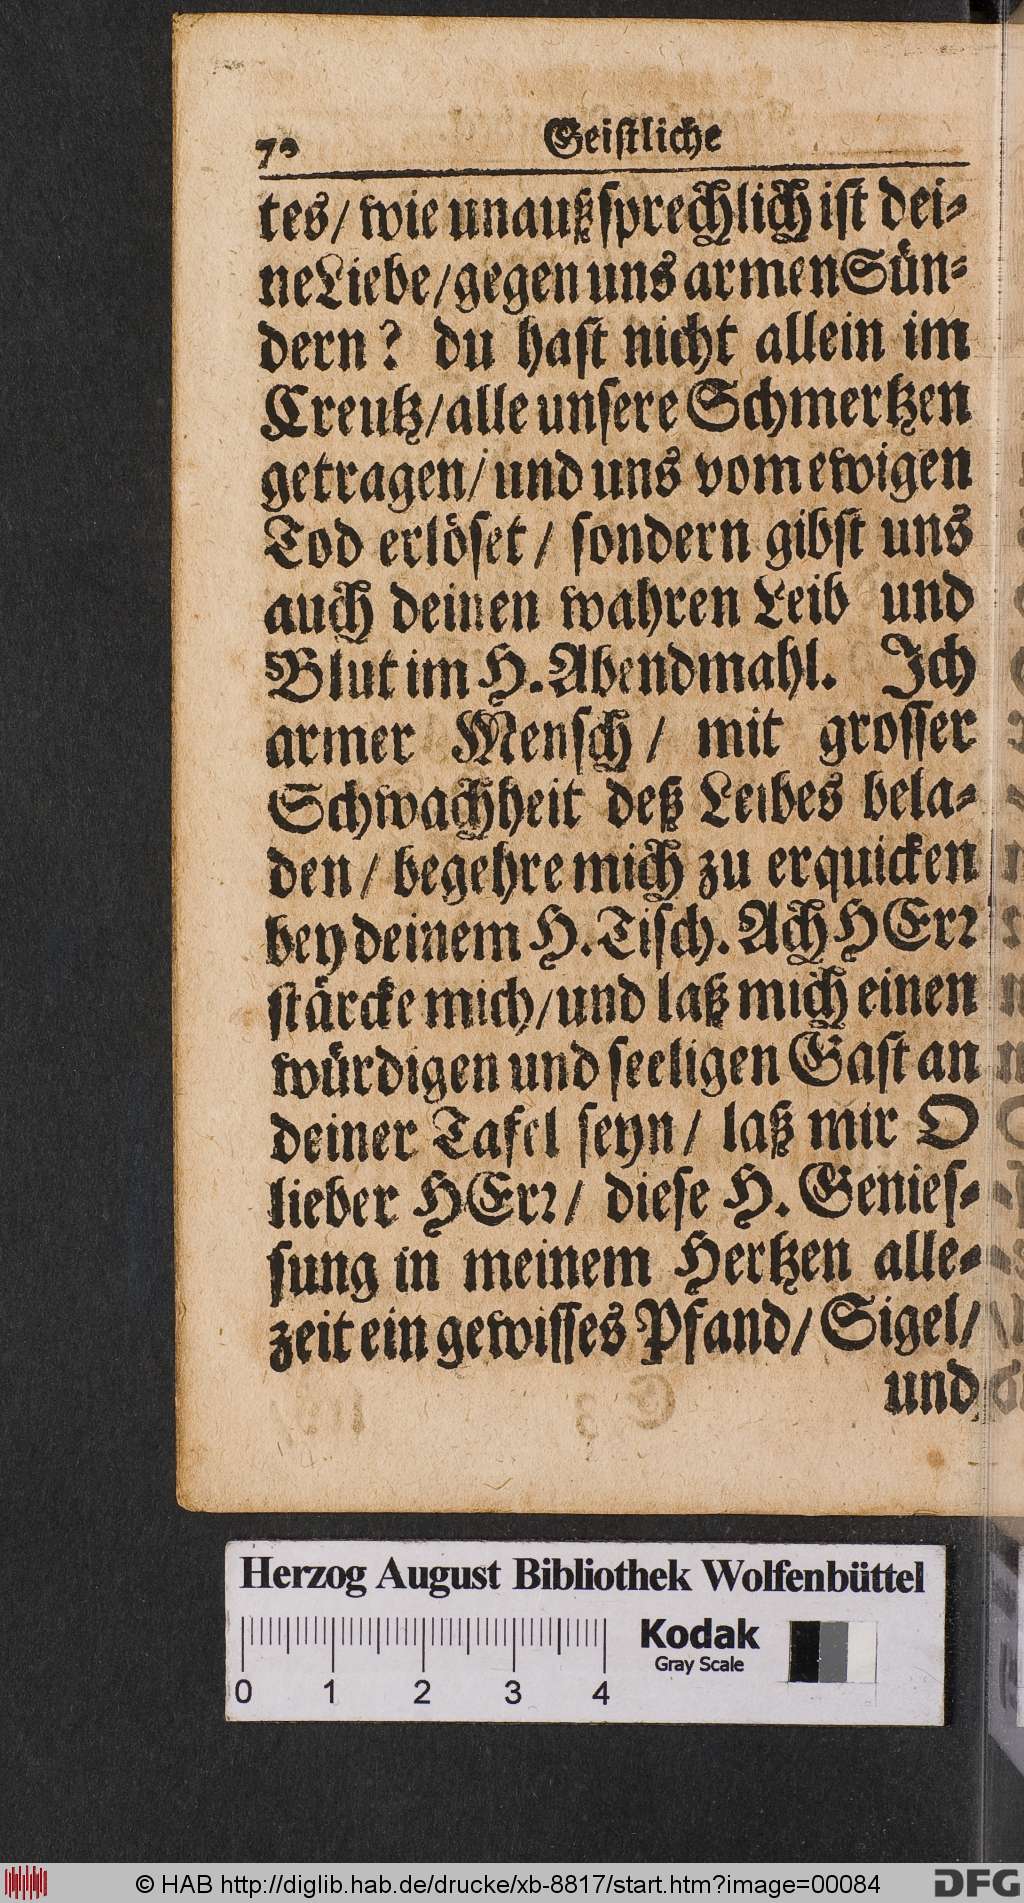 70 Geistliche
tes/ wie unaußsprechlich ist dei-
ne Liebe/ gegen uns armen Sün-
dern? du hast nicht allein im
Creutz/ alle unsere Schmertzen
getragen/ und uns vom ewigen
Tod erlöset/ sondern gibst uns
auch deinen wahren Leib und
Blut im H. Abendmahl. Ich
armer Mensch/ mit grosser
Schwachheit deß Leibes bela-
den/ begehre mich zu erquicken
bey deinem H. Tisch. Ach HErr
stärcke mich/ und laß mich einen
würdigen und seeligen Gast an
deiner Tafel seyn/ laß mir O
lieber HErr/ diese H. Genies-
sung in meinem Hertzen alle-
zeit ein gewisses Pfand/ Sigel/
und
Herzog August Bibliothek Wolfenbüttel
Kodak
Gray Scale
0 1 2 3 4
© HAB http://diglib.hab.de/drucke/xb-8817/start.htm?image=00084
DFG